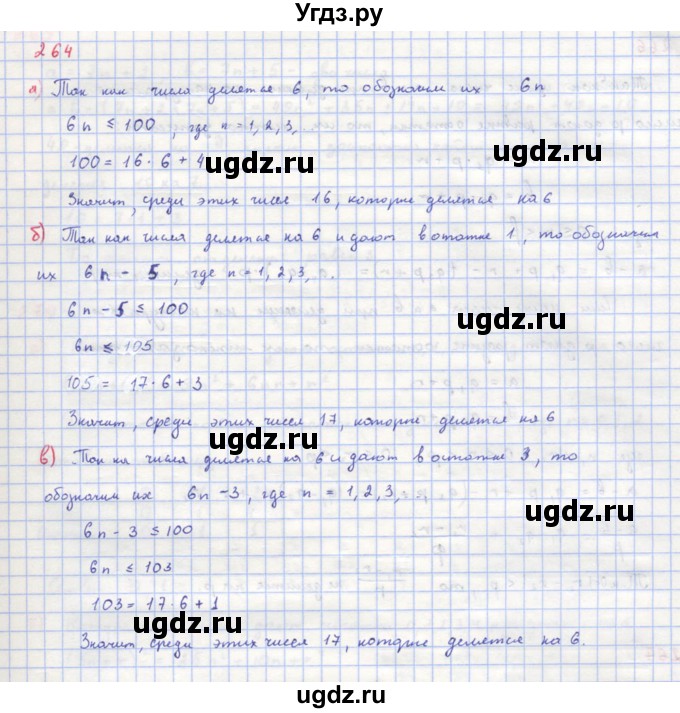 Угдз.ру
264
а) Так как числа делятся 6, то обозначим их 6n
6n ≤ 100, где n = 1, 2, 3,
100 = 16 · 6 + 4
ugdz.ru ugdz.ru
Значит, среди этих чисел 16, которые делятся на 6
б) Так как числа делятся на 6 и дают в остатке 1, то обозначим
их 6n - 5, где n = 1, 2, 3, .
6n - 5 ≤ 100
ugdz.ru
6n ≤ 105
105 = 17 · 6 + 3
Значит, среди этих чисел 17, которые делятся на 6
ugdz.ru
в) Так ка числа делятся на 6 и дают в остатке 3, то
обозначим их 6n - 3, где n = 1, 2, 3,
6n - 3 ≤ 100
ugdz.ru
6n ≤ 103
103 = 17 · 6 + 1
ugdz.ru
Значит, среди этих чисел 17, которые делятся на 6.
ugdz.ru